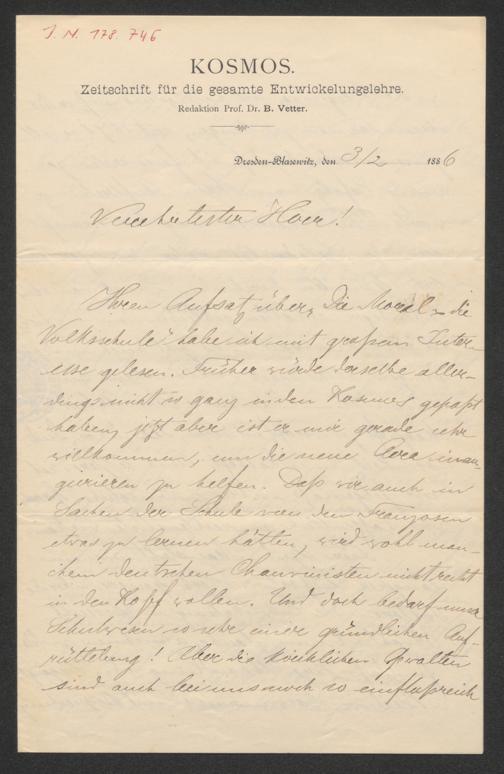 J. N. 178.746
KOSMOS.
Zeitschrift für die gesamte Entwickelungslehre.
Redaktion Prof. Dr. B. Vetter.
Dresden-Blasewitz, den 3/2 1886
Verehrtester Herr!
Ihren Aufsatz über „Die Moral in die
Volksschule" habe ich mit großem Inter-
esse gelesen. Früher würde derselbe aller-
dings nicht so ganz in den Kosmos gepaßt
haben, jetzt aber ist er mir gerade sehr
willkommen, um die neue Aera inau-
gurieren zu helfen. Daß wir auch in
Sachen der Schule von den Franzosen
etwas zu lernen hätten, wird wohl man-
chem deutschen Chauvinisten nicht recht
in den Kopf wollen. Und doch bedarf unser
Schulwesen so sehr einer gründlichen Auf-
rüttelung! Aber die kirchlichen Gewalten
sind auch bei uns noch so einflußreich